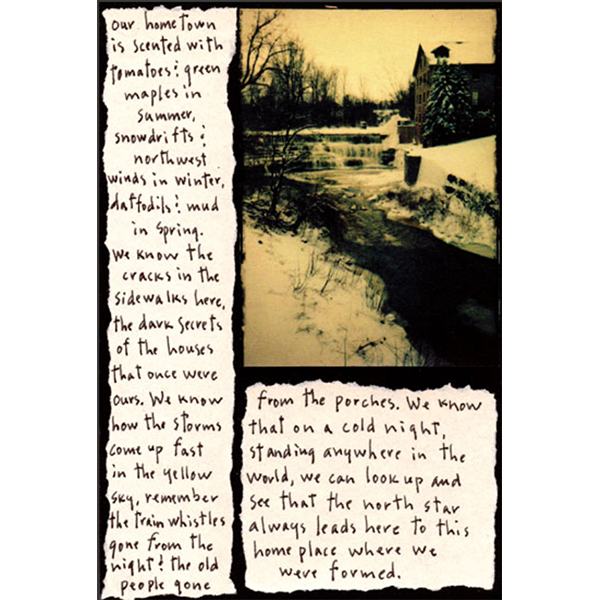 our hometown
is scented with
tomatoes & green
maples in
summer,
snowdrifts &
northwest
winds in winter,
daffodils & mud
in spring.
We know the
cracks in the
sidewalks here,
the dark secrets
of the houses
that once were
ours. We know
how the storms
come up fast
in the yellow
sky, remember
the train whistles
gone from the
night & the old
people gone
from the porches. We know
that on a cold night,
standing anywhere in the
world, we can look up and
see that the north star
always leads here to this
home place where we
were formed.